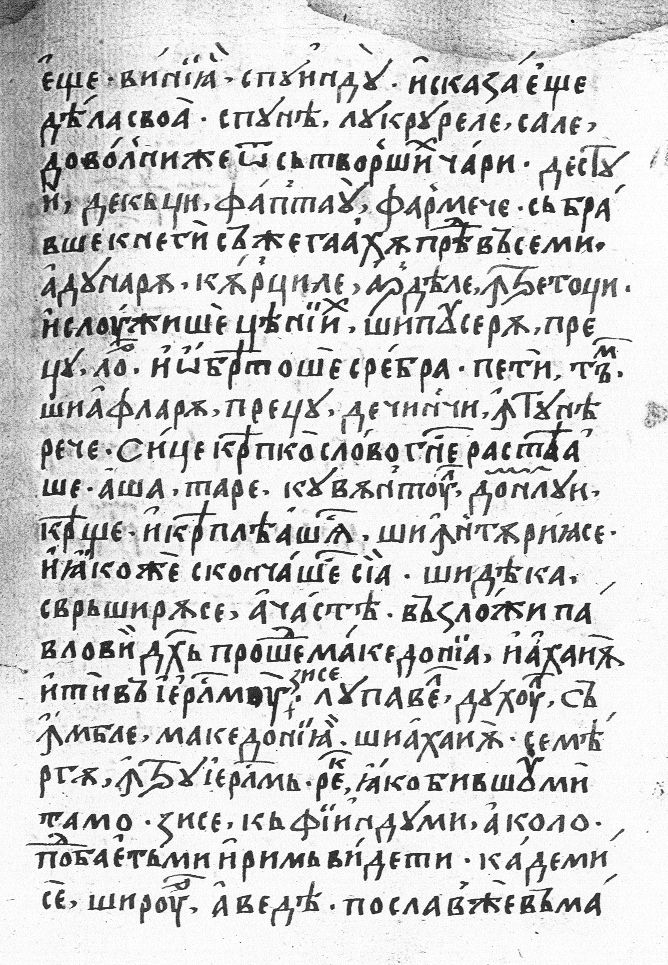 е҆ще · ви́нїа̀ · спꙋи́ндꙋ̀ · и҆сказа́е҆ще
дѣ́ла своа̀ · спꙋнѣ, лꙋкрꙋреле, сале,
дово́лни же ѿ сътво́рши́хъ ча́ри · дестꙋ
и, декъци, фа́птаꙋ̀, фармече · събра́
вше книги съжегаахѫ прѣ въсеми,
а҆дꙋнарѫ, кѫрциле, а҆рдѣле, ꙟтре тоци ·
и҆слоꙋ́жише цѣнїи́х, шипꙋсерѫ, пре
цꙋ, ло҆р, и҆ѡ҆брѣтоше сре́бра · пети, тъ́м,
шиа҆фларѫ, прецꙋ, дечинчи, ꙟтꙋнѣ
рече · Си́це крѣпко сло́во гн҃е растѣа
ше · а҆ша, таре, кꙋвѫнтоꙋл, домнлꙋи,
крѣще · и҆крѣплѣа́шесѧ, шиꙟнтѫриꙗсе ·
и҆ꙗ҆коже скончашесїа · шидѣка,
сврьширѫсе, а҆ча́стѣ · възло́жи па́
влови дх҃ь прошѐдмакедонїа, и҆а҆хаиѫ
и҆ти въ і҆е҆рⷭлмь · зисе лꙋпаве́л, дꙋхоꙋл, съ
ꙟмбле, македонїꙗ̀ · шиа҆хаиѫ · семѣ́
ргѫ, ꙟтрꙋ і҆е҆рⷭлмь · рек, ꙗ҆ко бившꙋми
тамо · зисе, къфїи́ндꙋми, а҆коло ·
подобае҆тъми и҆римь ви́дети · ка́деми
се, широꙋ̀м, а҆ведѣ · послав́же въ ма́